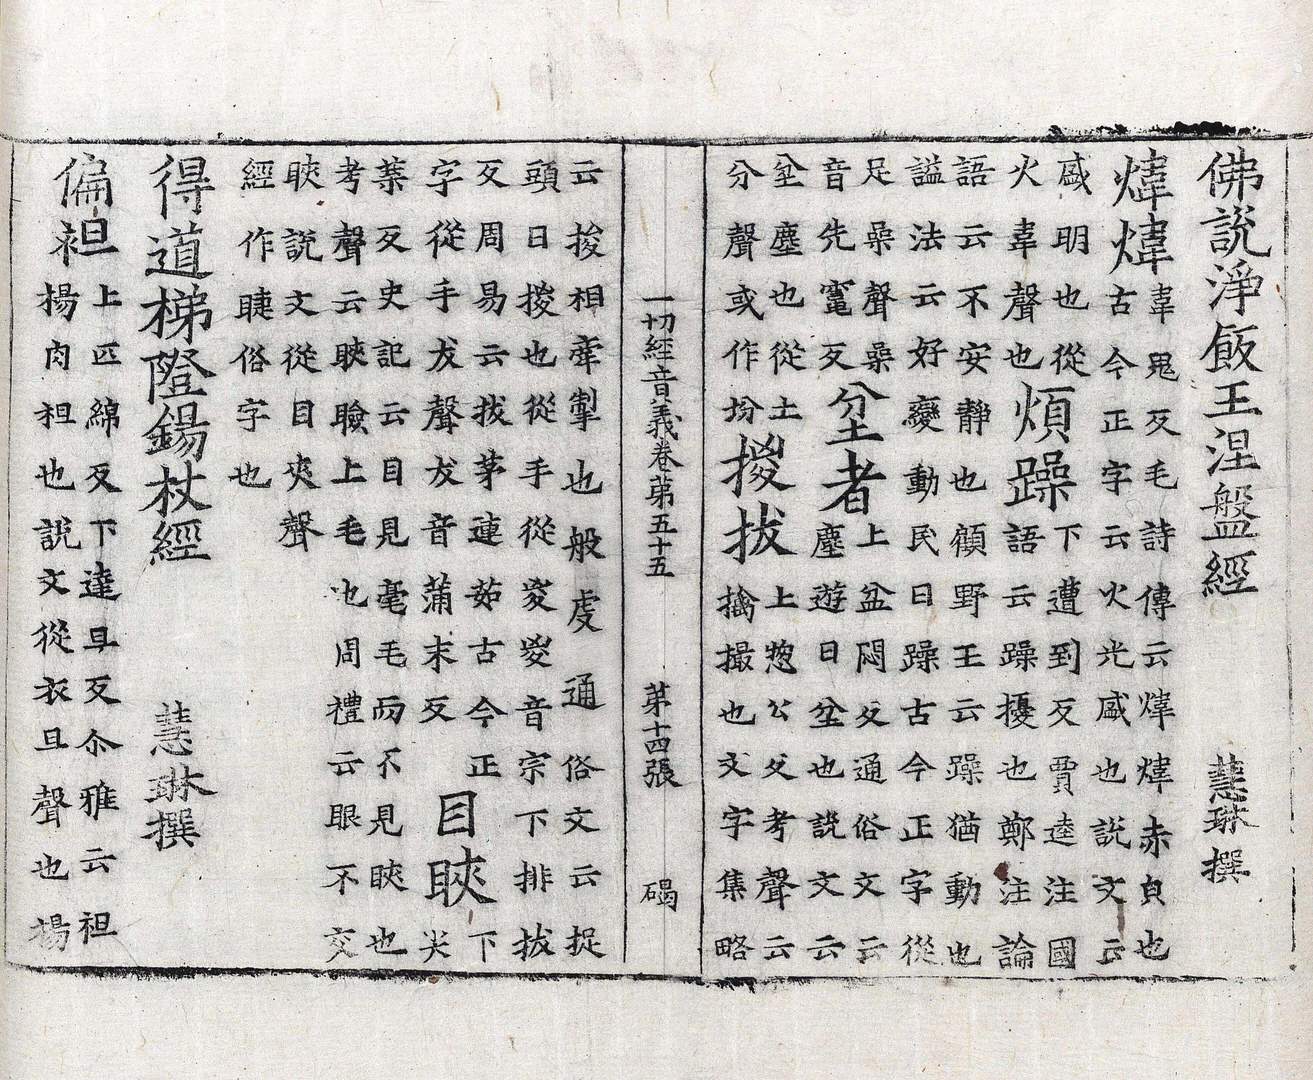 佛說淨飯王涅盤經 慧琳撰
煒煒韋鬼反毛詩傳云煒煒赤皃也
古今正字云火光盛也說文云
盛明也從
火韋聲也煩躁下遭到反賈逵注國
語云躁擾也鄭注論
語云不安靜也顧野王云躁猶動也
謚法云好變動民曰躁古今正字從
足喿聲喿
音先竃反坌者上盆悶反通俗文云
塵遊曰坌也說文云
坌塵也從土
分聲或作坋㨑拔上惣公反考聲云
擒撮也文字集略
一切經音義卷第五十五 第十四張 碣
云捘相牽掣也般䖍通俗文云捉
頭曰㨑也從手從㚇㚇音宗下排拔
反周易云拔茅連茹古今正
字從手犮聲犮音蒲末反目䀹下尖
葉反史記云目見毫毛而不見䀹也
考聲云䀹瞼上毛也周禮云眼不交
䀹說文從目夾聲
經作睫俗字也
得道梯隥錫杖經 慧琳撰
偏袒上匹綿反下達旦反尒雅云袒
裼肉袒也說文從衣旦聲也裼